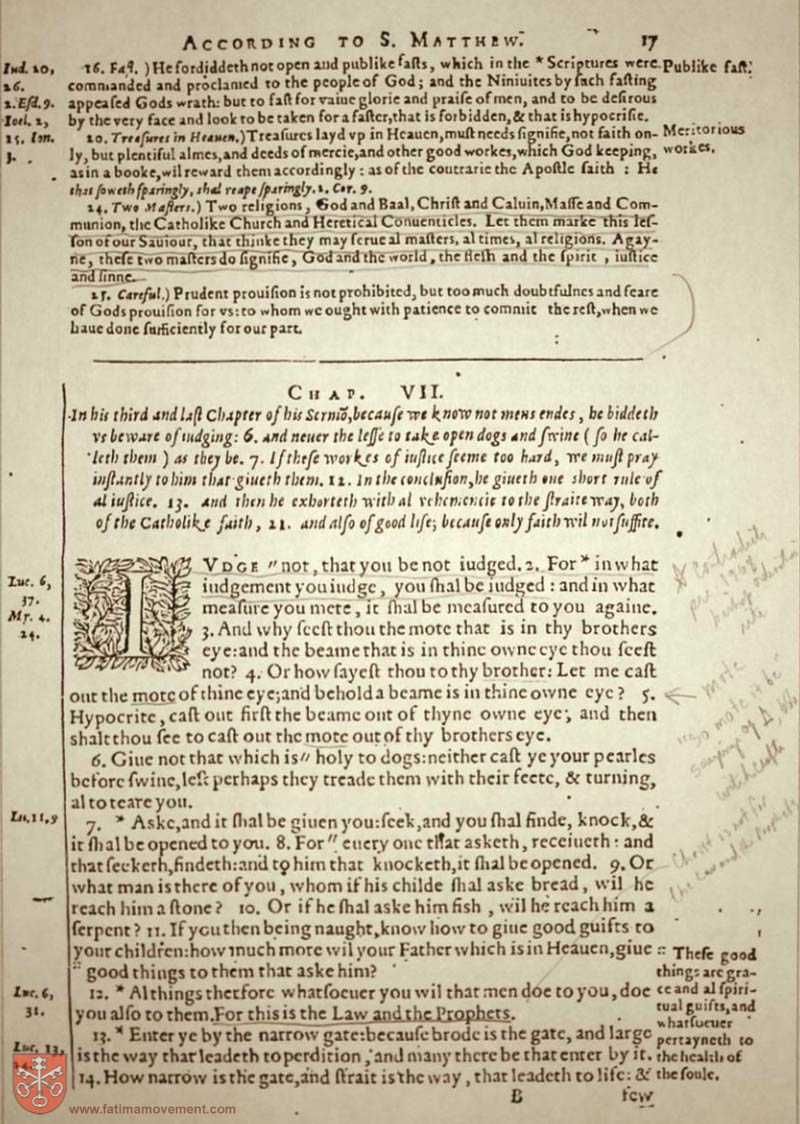 ACCORDING TO S. MATTHEW. 17
16. Faſt.) He fordiddeth not open and publike faſts, which in the * Scriptures were
commanded and proclamed to the people of God; and the Niniuites by ſuch faſting
appeaſed Gods wrath: but to faſt for vaine glorie and praiſe of men, and to be deſirous
by the very face and look to be taken for a faſter, that is forbidden, & that is hypocriſie.
20. Treaſures in Heauen.) Treaſures layd vp in Heauen, muſt needs ſignifie, not faith on-
ly, but plentiful almes, and deeds of mercie, and other good workes, which God keeping,
as in a booke, wil reward them accordingly: as of the contrarie the Apoſtle ſaith : He
that ſoweth ſparingly, shal reape ſparingly. 2. Cor. 9.
24. Two Maſters.) Two religions, God and Baal, Chriſt and Caluin, Maſſe and Com-
munion, the Catholike Church and Heretical Conuenticles. Let them marke this leſ-
ſon of our Sauiour, that thinke they may ſerue al maſters, al times, al religions. Agay-
ne, theſe two maſters do ſignifie, God and the world, the fleſh and the ſpirit, iuſtice
and ſinne.
25. Careful.) Prudent prouiſion is not prohibited, but too much doubtfulnes and feare
of Gods prouiſion for vs: to whom we ought with patience to commit the reſt, when we
haue done ſufficiently for our part.
Iud. 20,
26.
2. Eſd. 9.
Ioel. 2,
15. Ion.
3.
Publike faſt.
Meritorious
workes.
CHAP. VII.
In his third and laſt Chapter of his Sermō, becauſe we know not mens endes, he biddeth
vs beware of iudging: 6. and neuer the leſſe to take open dogs and ſwine (ſo he cal-
leth them) as they be. 7. If theſe workes of iuſtice ſeeme too hard, we muſt pray
inſtantly to him that giueth them. 12. In the concluſion, he giueth one short rule of
al iuſtice. 13. and then he exhorteth with al vehemencie to the ſtraite way, both
of the Catholike faith, 21. and alſo of good life; becauſe only faith wil not ſuffice.
IVDGE " not, that you be not iudged. 2. For * in what
iudgement you iudge, you ſhal be iudged : and in what
meaſure you mete, it ſhal be meaſured to you againe.
3. And why ſeeſt thou the mote that is in thy brothers
eye: and the beame that is in thine owne eye thou ſeeſt
not? 4. Or how ſayeſt thou to thy brother: Let me caſt
out the mote of thine eye; and behold a beame is in thine owne eye? 5.
Hypocrite, caſt out firſt the beame out of thyne owne eye, and then
shalt thou ſee to caſt out the mote out of thy brothers eye.
6. Giue not that which is " holy to dogs: neither caſt ye your pearles
before ſwine, leſt perhaps they treade them with their feete, & turning,
al to teare you.
7. * Aske, and it ſhal be giuen you: ſeek, and you ſhal finde, knock, &
it ſhal be opened to you. 8. For " euery one that asketh, receiueth : and
that ſeeketh, findeth: and to him that knocketh, it ſhal be opened. 9. Or
what man is there of you, whom if his childe ſhal aske bread, wil he
reach him a ſtone? 10. Or if he ſhal aske him fish, wil he reach him a
ſerpent? 11. If you then being naught, know how to giue good guifts to
your children: how much more wil your Father which is in Heauen, giue
:: good things to them that aske him?
12. * Al things therfore whatſoeuer you wil that men doe to you, doe
you alſo to them. For this is the Law and the Prophets.
13. * Enter ye by the narrow gate: becauſe brode is the gate, and large
is the way that leadeth to perdition, and many there be that enter by it.
14. How narrow is the gate, and ſtrait is the way, that leadeth to life: &
B few
Luc. 6,
37.
Mr. 4.
24.
Lu. 11, 9
Luc. 6,
31.
Luc. 13,
mote
:: Theſe good
things are gra-
ce and al ſpiri-
tual guifts, and
whatſoeuer
pertayneth to
the health of
the ſoule.
www.fatimamovement.com